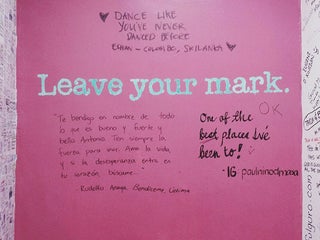 DANCE LIKE
YOU'VE NEVER
DANCED BEFORE
- COLOMBO, SRI LANKA
Leave your mark.
"Te bendigo en nombre de todo
lo que es bueno y fuerte y
bello Antonio. Ten siempre la
fuerza para vivir. Ama la vida,
y si la desesperanza entra en
tu corazón, búscame..."
- Rudolfo Anaya, Bendíceme, Última
OK
One of the
best places I've
been to!
- IG